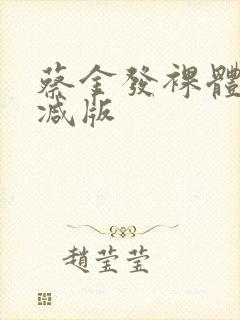 蔡金發裸體
减版
趙莹莹